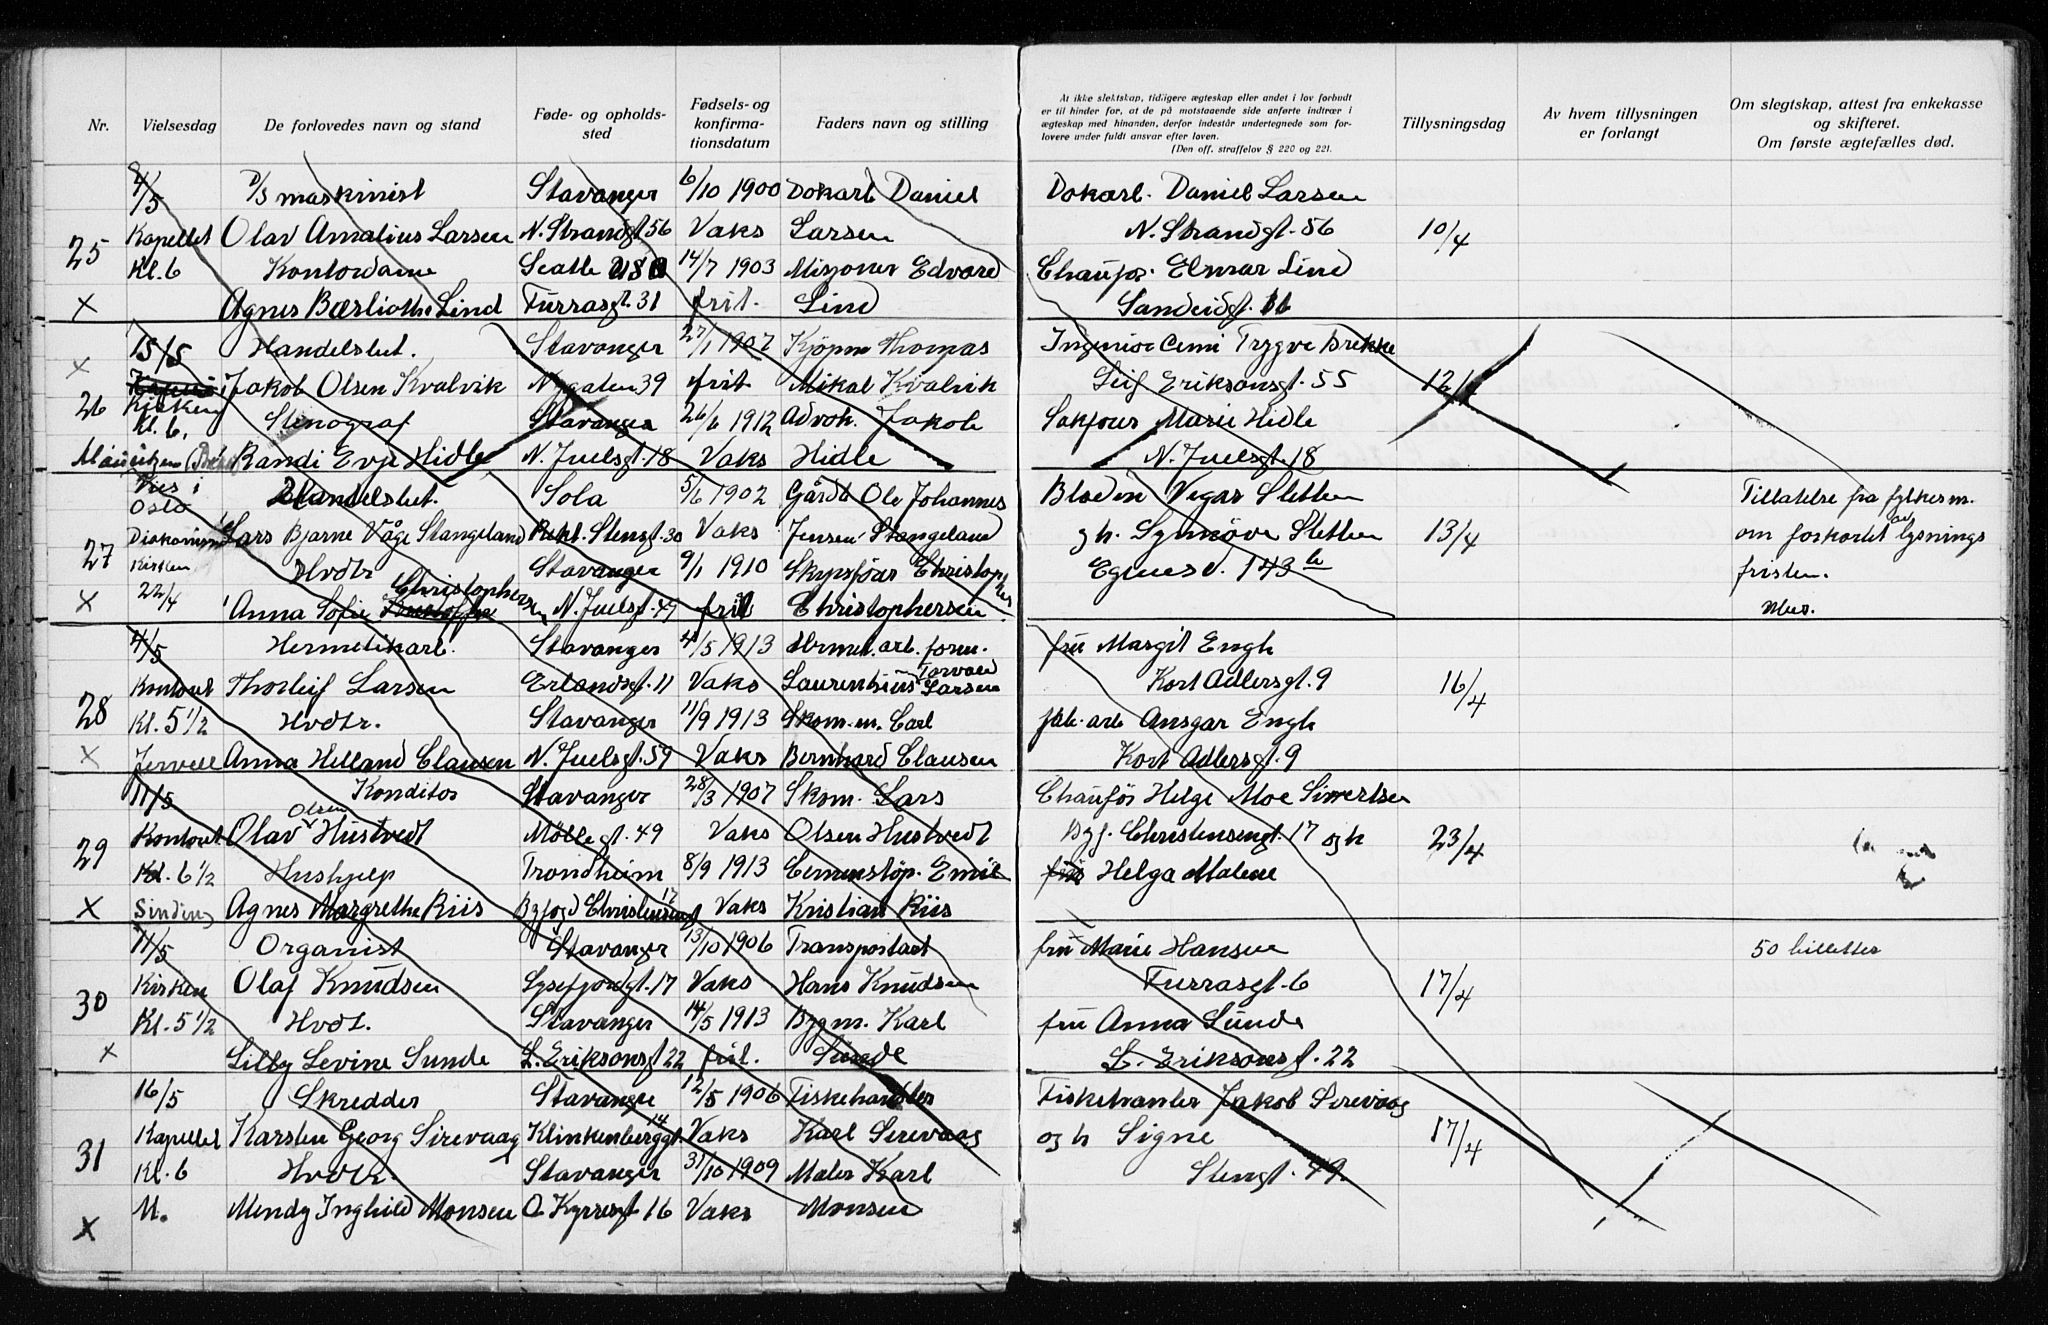 Nr.
Vielsesdag
De forlovedes navn og stand
Føde- og opholds-
sted
Fødsels- og
konfirma-
tionsdatum
Faders navn og stilling
At ikke slektskap, tidligere ægteskap eller andet i lov forbudt
er til hinder for, at de på motstaaende side anførte indtrær i
ægteskap med hinanden, derfor indestår undertegnede som for-
lovere under fuldt ansvar efter loven.
(Den off. straffelov § 220 og 221.
Tillysningsdag
Av hvem tillysningen
er forlangt
Om slegtskap, attest fra enkekasse
og skifteret.
Om første ægtefælles død.
4/5 D/S maskinist Stavanger 6/10 1900 Dokarb Daniel Dokarb. Daniel Larsen
25 Kapellet Olav Amalius Larsen N. Strandgt 56 Vaks Larsen N. Strandgt. 56 10/4
Kl. 6 Kontordame Seatle USA 14/7 1903 Misjoner Edvard Chaufør. Elmar Lind
x Agnes Lind Furrasgt. 31 frit. Lind Sandeidgt. 16
x 15/5 Handelsbet. Stavanger 27/1 1907 Kjøpm Thomas Ingeniør Trygve Brekke
26 Kirken Jakob Olsen Kvalvik Nygaten 39 frit Mikal Kvalvik Leif Eriksonsgt. 55 12/4
Kl. 6. Stenograf Stavanger 26/6 1912 Advok. Jakob Marie Hidle
Randi Evje Hidle N. Juelsgt. 18 Vaks Hidle N. Juelsgt. 18
Vies i Oslo Handelsbet. Sola 5/6 1902 Gårdb Ole Johannes Vegar Sletten Tillatelse fra fylkesm.
27 Lars Bjarne Våge Stangeland Stengt. 30 Vaks Jensen Stangeland gh. Synnøve Sletten 13/4 om forkortet av lysnings
Kirken Hvdtr Stavanger 9/1 1910 Skipsfør Christopher Egenesv. 143 b fristen.
x 22/4 Anna Sofie Christophersen N. Juelsgt. 49 frit Christophersen
4/5 Hermetikarb. Stavanger 4/5 1913 Hermet. arb. form. fru Margit Engh
28 Kontoret Thorleif Larsen Erlandsgt. 11 Vaks Laurentius Torvald Larsen Kort Adlersgt. 9 16/4
Kl. 5 1/2 Hvdtr. Stavanger 11/9 1913 Skom. m. Carl fabr. arb Ansgar Engh
x Jervell Anna Helland Clausen N. Juelsgt. 59 Vaks Bernhard Clausen Kort Adlersgt. 9
11/5 Konditor Stavanger 28/3 1907 Skom. Lars Chaufør Helge Moe Sivertsen
29 Kontoret Olav Olsen Hustvedt Møllegt. 49 Vaks Olsen Hustvedt Byf. Christensensgt. 17 og h 23/4
Kl. 6 1/2 Hushjelp Trondheim 8/9 1913 Cementstøp. Emil fru Helga Malene
x Sinding Agnes Margrethe Riis Byfogd Christensensgt 17 Vaks Kristian Riis
11/5 Organist Stavanger 13/10 1906 Transportarb fru Marie Hansen 50 billetter
30 Kirken Olaf Knudsen Lysefjordgt. 17 Vaks Hans Knudsen Furrasgt. 6 17/4
Kl. 5 1/2 Hvdt. Stavanger 14/5 1913 Bygm. Karl fru Anna Sunde
x Lilly Levine Sunde L. Eriksonsgt 22 frit. Sunde L. Eriksonsgt. 22
16/5 Skredder Stavanger 12/5 1906 Fiskehandler Fiskehandler Jakob Sirevaag
31 Kapellet Karsten Georg Sirevaag Klinkenberggt. 14 Vaks Karl Sirevaag og h Signe 17/4
Kl. 6 Hvdtr. Stavanger 31/10 1909 Maler Karl Stengt. 49.
x M. Mendy Inghild Monsen O Kyrresgt 16 Vaks Monsen